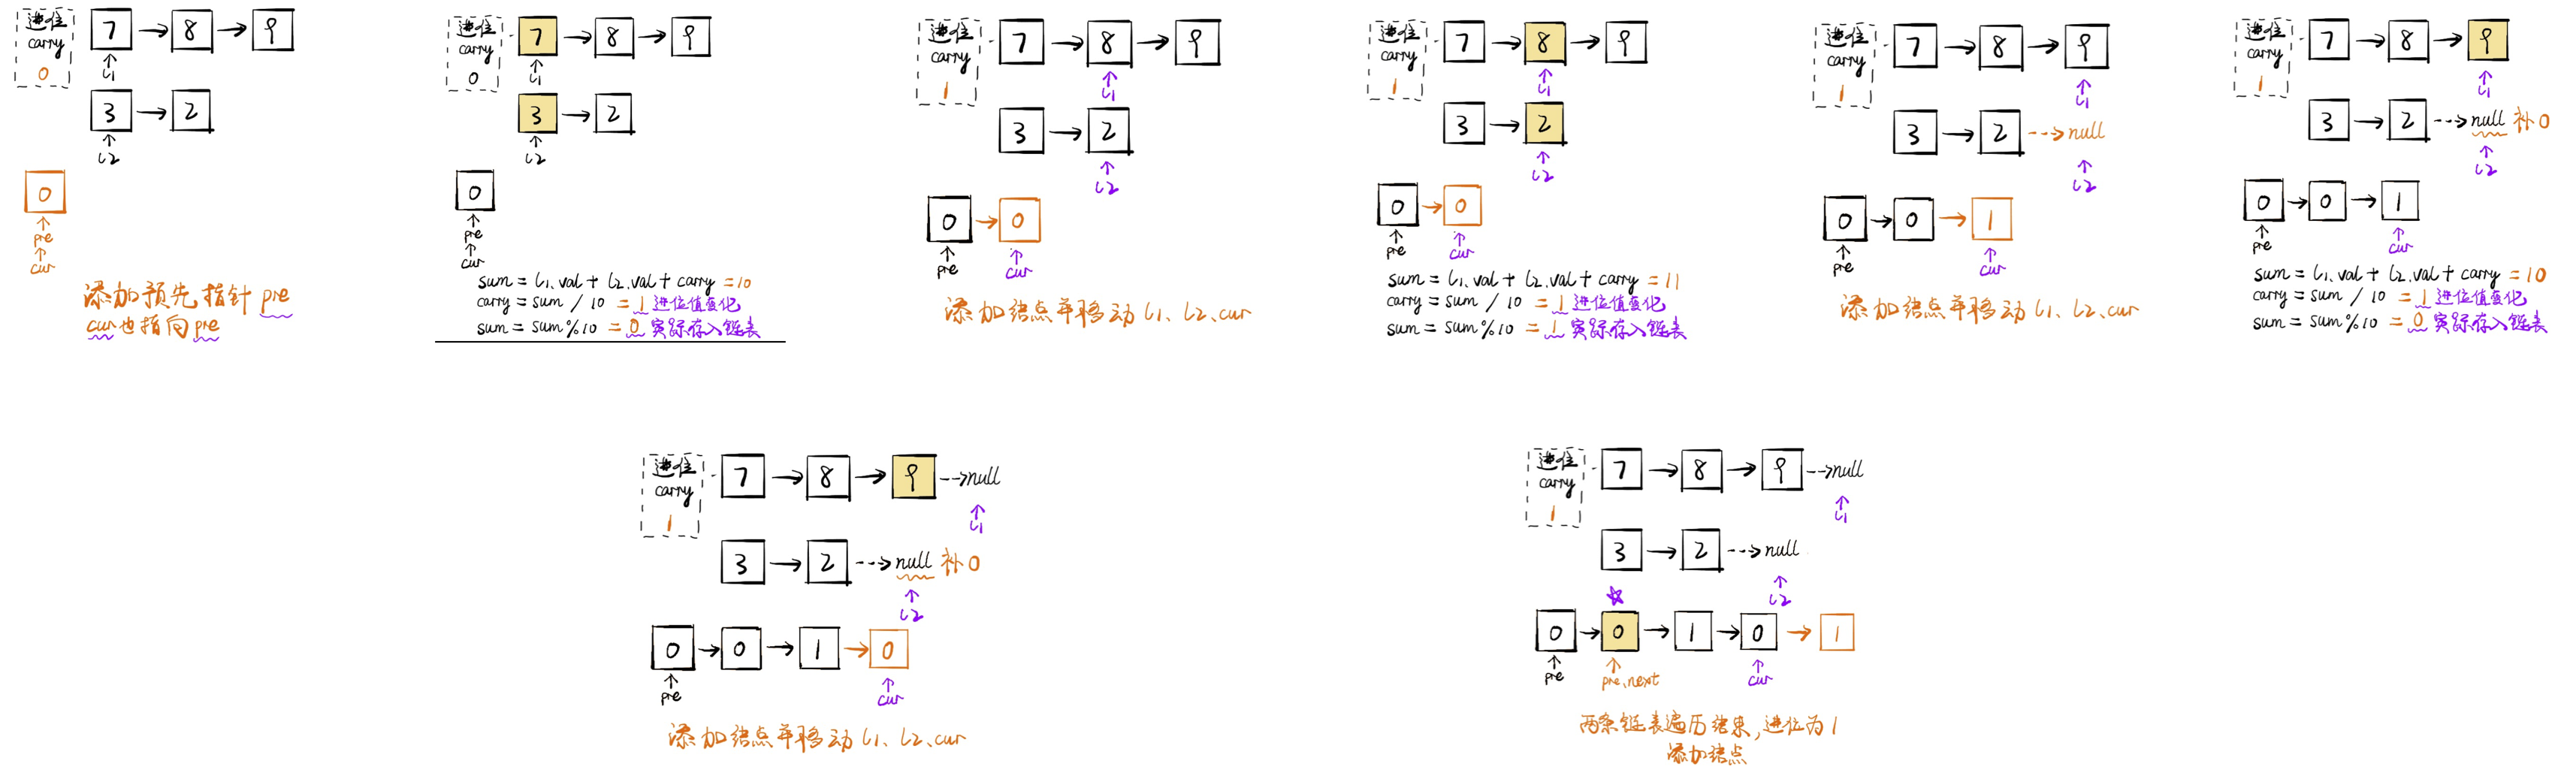 进位
carry
0
7 → 8 → 9
↑
l1
3 → 2
↑
l2
0
↑
pre
↑
cur
添加预先指针 pre
cur也指向pre
进位
carry
0
7 → 8 → 9
↑
l1
3 → 2
↑
l2
0
↑
pre
↑
cur
sum = l1.val + l2.val + carry = 10
carry = sum / 10 = 1 进位值变化
sum = sum%10 = 0 实际存入链表
进位
carry
1
7 → 8 → 9
↑
l1
3 → 2
↑
l2
0 → 0
↑ ↑
pre cur
添加结点并移动 l1、l2、cur
进位
carry
1
7 → 8 → 9
↑
l1
3 → 2
↑
l2
0 → 0
↑ ↑
pre cur
sum = l1.val + l2.val + carry = 11
carry = sum / 10 = 1 进位值变化
sum = sum%10 = 1 实际存入链表
进位
carry
1
7 → 8 → 9
↑
l1
3 → 2 --→ null
↑
l2
0 → 0 → 1
↑ ↑
pre cur
添加结点并移动 l1、l2、cur
进位
carry
1
7 → 8 → 9
↑
l1
3 → 2 --→ null 补0
↑
l2
0 → 0 → 1
↑ ↑
pre cur
sum = l1.val + l2.val + carry = 10
carry = sum / 10 = 1 进位值变化
sum = sum%10 = 0 实际存入链表
进位
carry
1
7 → 8 → 9 --→ null
↑
l1
3 → 2 --→ null 补0
↑
l2
0 → 0 → 1 → 0
↑ ↑
pre cur
添加结点并移动 l1、l2、cur
进位
carry
1
7 → 8 → 9 --→ null
↑
l1
3 → 2 --→ null
↑
l2
0 → 0 → 1 → 0 → 1
↑ ↑ ↑
pre pre.next cur
两条链表遍历结束,进位为1
添加结点